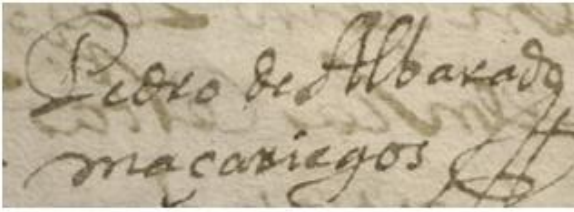 Pedro de Albarado
maçariegos